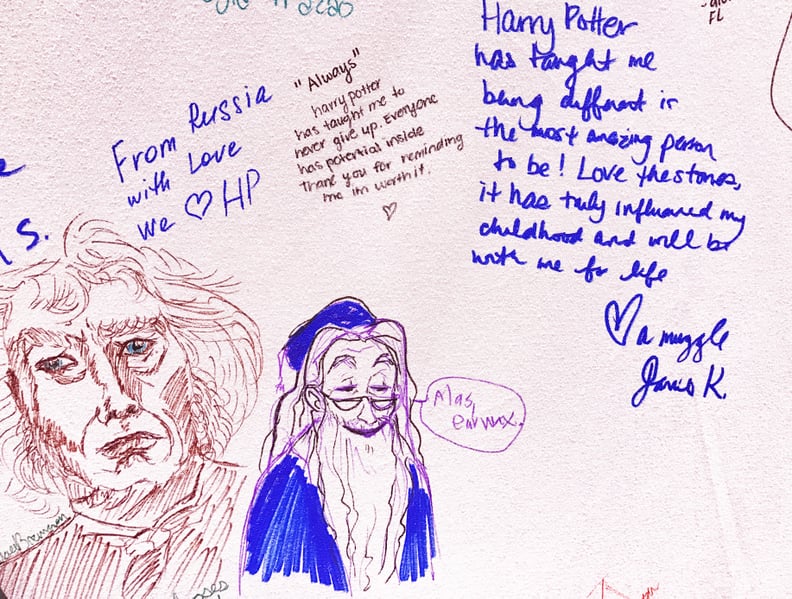 From Russia
with Love
We ♡ HP
"Always"
harry potter
has taught me to
never give up. Everyone
has potential inside
Thank you for reminding
me im worth it.
♡
Harry Potter
has taught me
being different is
the most amazing person
to be! Love the stories,
it has truly influenced my
childhood and will be
with me for life
♡ a muggle
K.
Alas,
earwax.
S.
FL